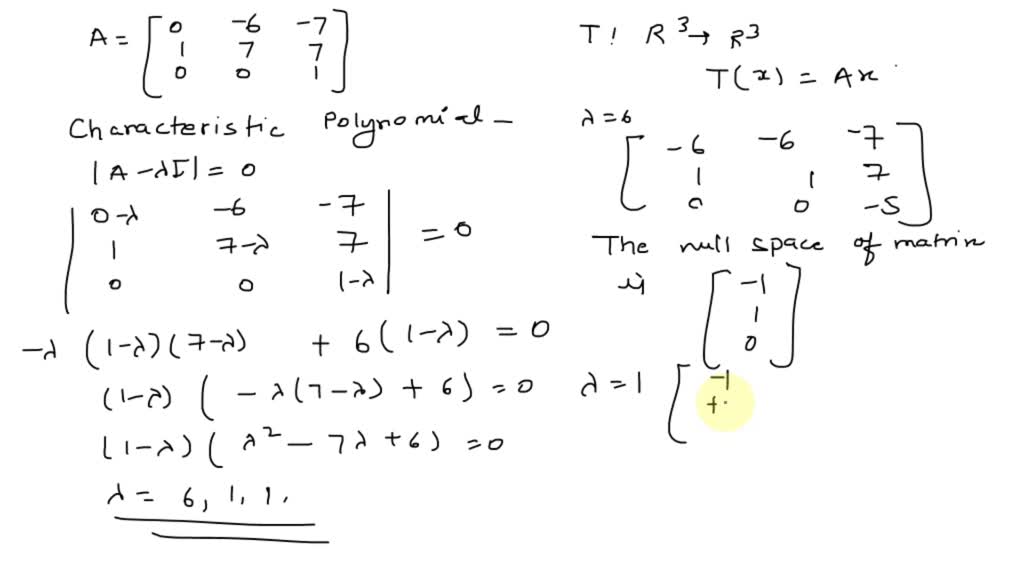 A = [ 0 -6 -7
1 7 7
0 0 1 ]
Characteristic Polynomial -
|A - λI| = 0
| 0-λ -6 -7 |
| 1 7-λ 7 | = 0
| 0 0 1-λ |
-λ (1-λ)(7-λ) + 6(1-λ) = 0
(1-λ) ( -λ(7-λ) + 6) = 0
(1-λ)( λ² - 7λ + 6) = 0
λ = 6, 1, 1.
T! R³ → R³
T(x) = Ax
λ = 6
[ -6 -6 -7
1 1 7
0 0 -5 ]
The null space of matrix
is [ -1
1
0 ]
λ = 1 [ -1